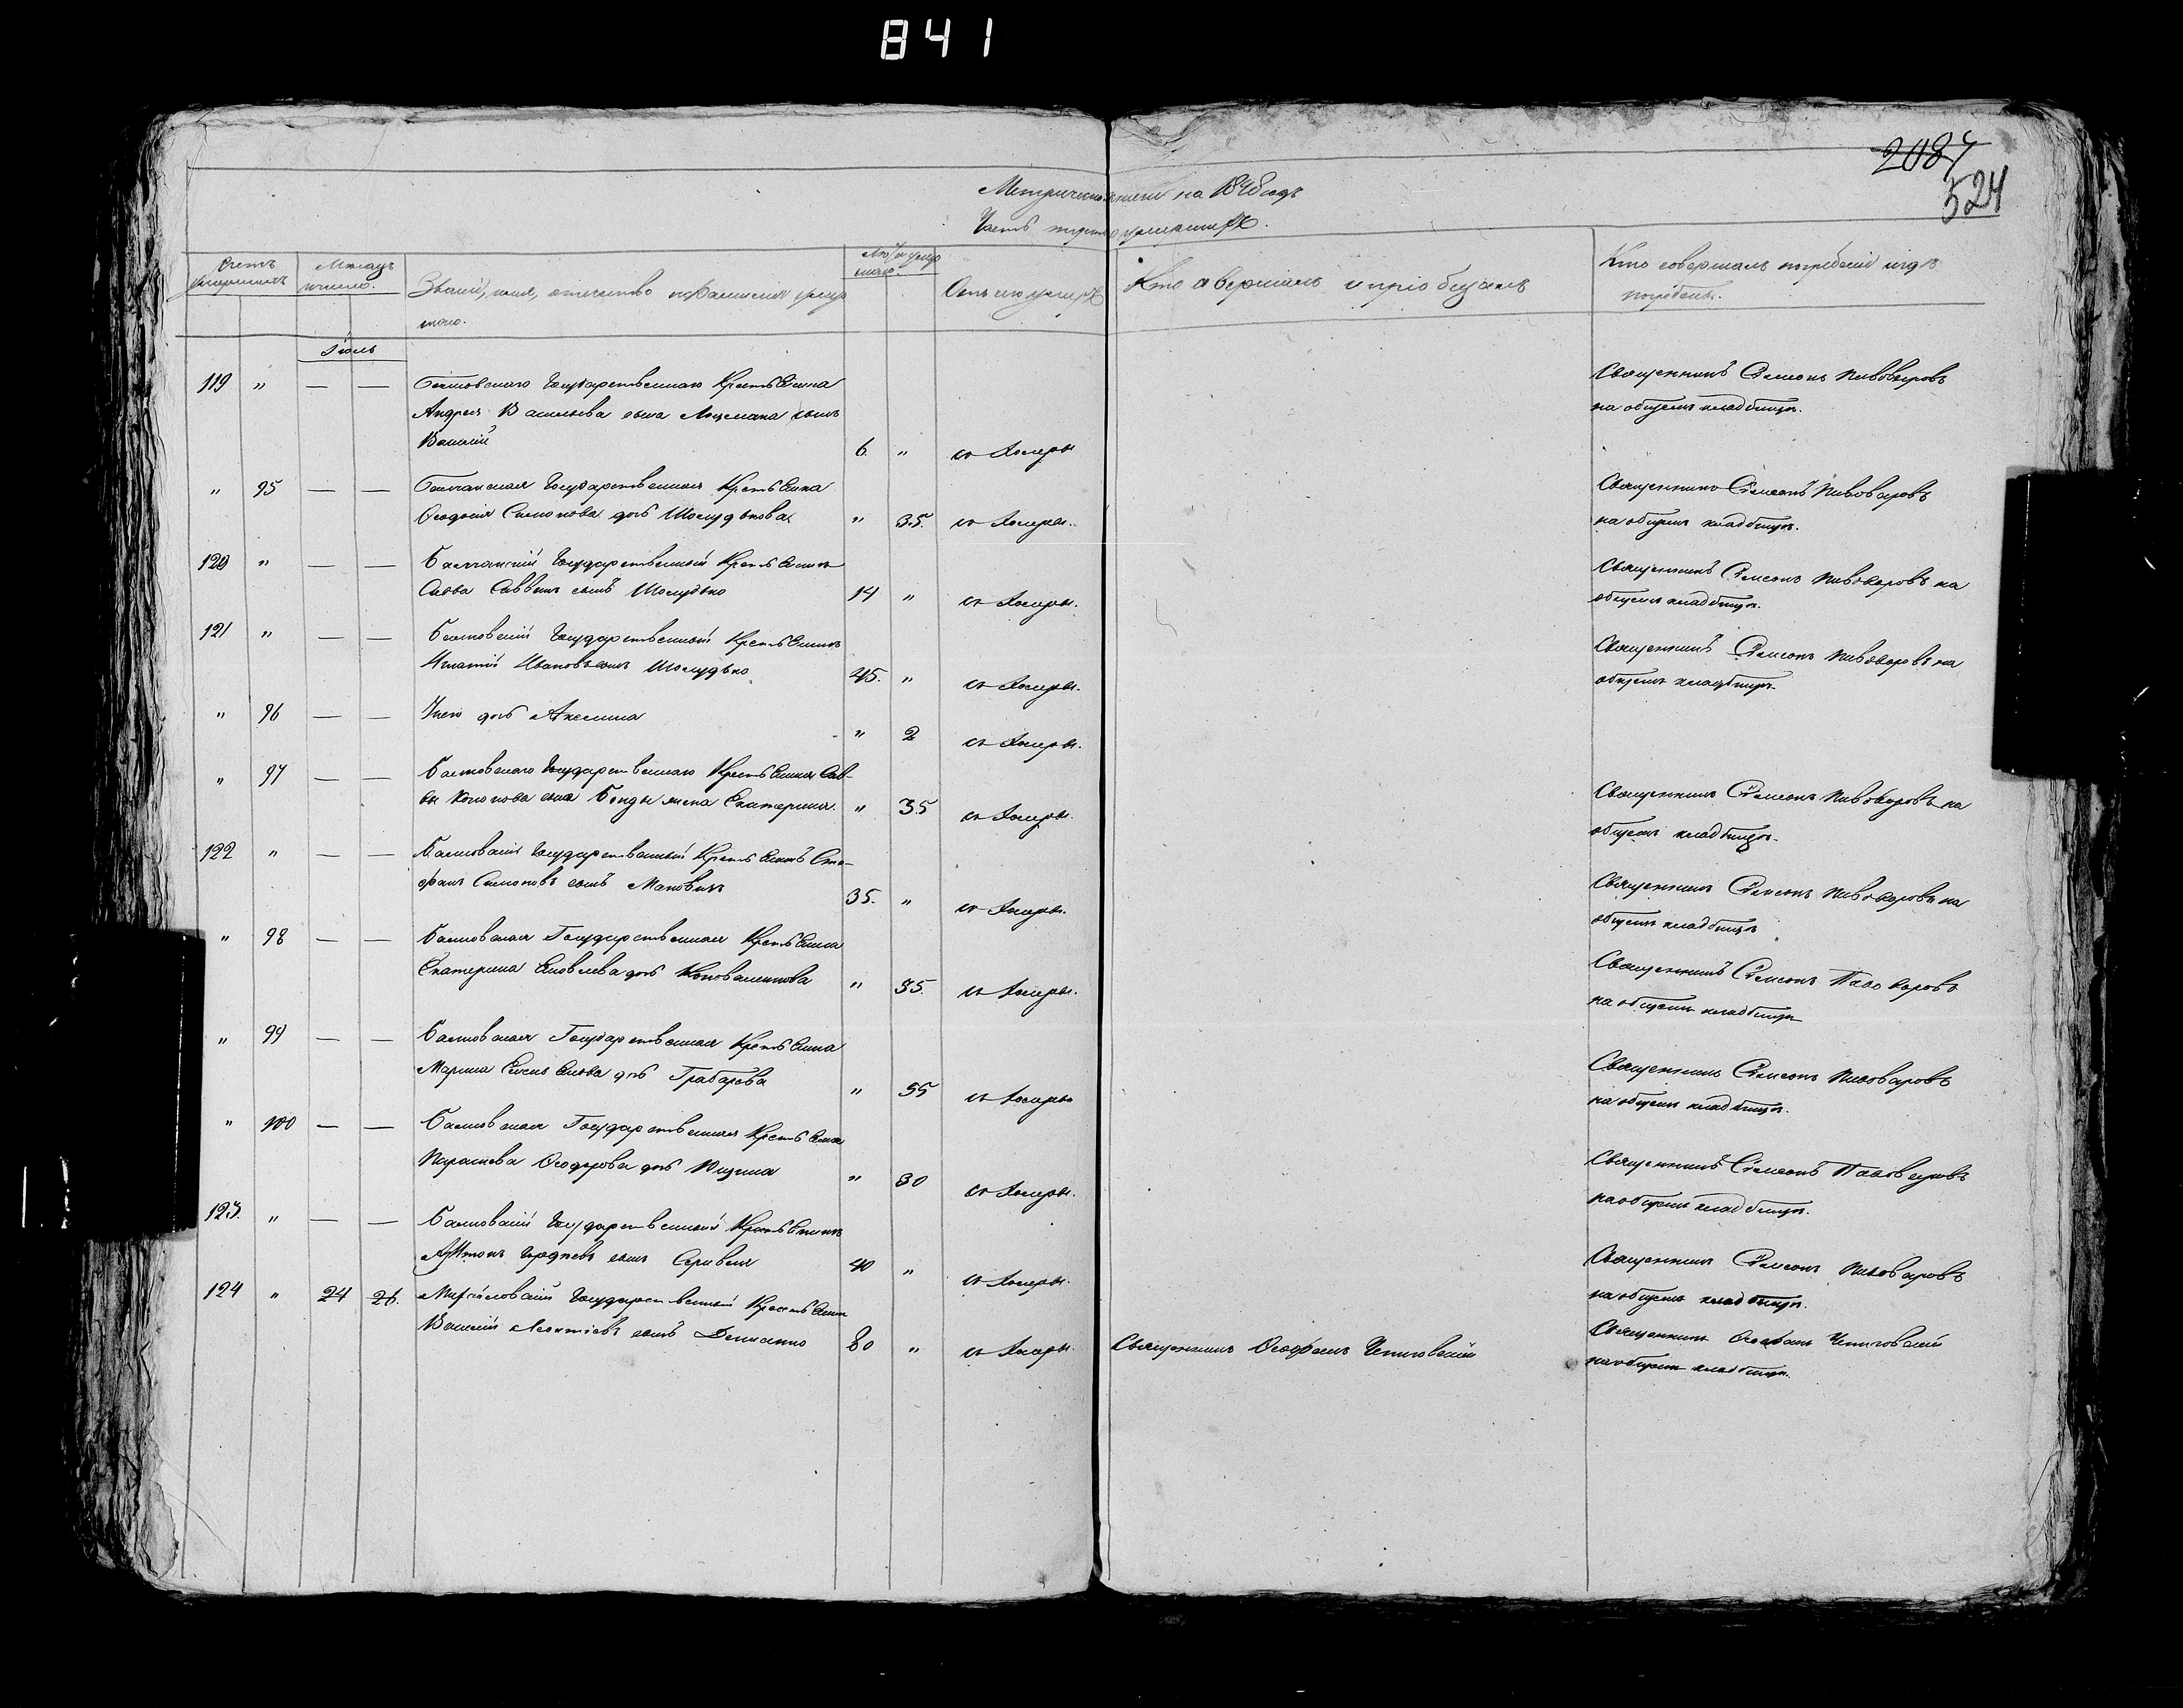 841
2087
524
Метрической книги на 1848 годъ
Часть третья о умершихъ.
Счетъ умершихъ
Мѣсяцъ и число.
Званіе, имя, отчество и фамилия умер
шаго.
Лѣта умер
шаго.
Отъ чего умеръ
Кто исповѣдывалъ и пріобщалъ
Кто совершалъ погребеніе и гдѣ
погребены.
Іюль
119 " — — Государственнаго Крестьянина
Андрея Васильева сына сынъ
Василій 6. " отъ Холеры
Священникъ Симеонъ Пивоваровъ
на общемъ кладбищѣ.
" 95 — — Государственная Крестьянка
Ѳеодосія Симонова дочь Шолудькова " 35. отъ Холеры.
Священникъ Симеонъ Пивоваровъ
на общемъ кладбищѣ.
120 " — — Государственный Крестьянинъ
Савва Саввинъ сынъ Шолудько 14 " отъ Холеры.
Священникъ Симеонъ Пивоваровъ на
общемъ кладбищѣ.
121 " — — Государственный Крестьянинъ
Игнатій Ивановъ сынъ Шолудько 45. " отъ Холеры.
Священникъ Симеонъ Пивоваровъ на
общемъ кладбищѣ.
" 96 — — дочь Акелина " 2 отъ Холеры.
" 97 — — Государственнаго Крестьянина Сав-
вы сына Бенды жена Екатерина. " 35 отъ Холеры.
Священникъ Симеонъ Пивоваровъ на
общемъ кладбищѣ.
122 " — — Государственный Крестьянинъ Сте-
фанъ Симоновъ сынъ 35. " отъ Холеры.
Священникъ Симеонъ Пивоваровъ на
общемъ кладбищѣ
" 98 — — Государственная Крестьянка
Екатерина Яковлева дочь Коновалникова " 35. отъ Холеры.
Священникъ Симеонъ Пивоваровъ
на общемъ кладбищѣ
" 99 — — Государственная Крестьянка
Марина дочь Грабарева " 55 отъ Холеры
Священникъ Симеонъ Пивоваровъ
на общемъ кладбищѣ.
" 100 — — Государственная Крестьянка
Параскева Ѳеодорова дочь " 30 отъ Холеры.
Священникъ Симеонъ Пивоваровъ
на общемъ кладбищѣ.
123. " — — Государственный Крестьянинъ
Антонъ сынъ 40 " отъ Холеры.
Священникъ Симеонъ Пивоваровъ
на общемъ кладбищѣ.
124 " 24 26. Государственный Крестьянинъ
Василій Леонтіевъ сынъ 80 " отъ Холеры.
Священникъ Ѳеофанъ
Священникъ Ѳеофанъ
на общемъ кладбищѣ.